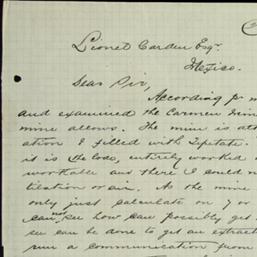 Lionel Carden Esqr.
Mexico.
Dear Sir,
According to m
and examined the Carmen
mine allows. The mine is
ation & filled with
it is entirely worked
workable and there I could no
tilation or air. As the mine
only just calculate on 7 or
cannot see how can possibly get
can be done to get an extract
run a communication from